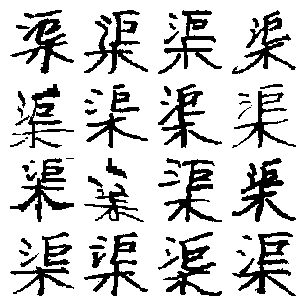 渠渠渠渠
渠渠渠渠
渠渠渠渠
渠渠渠渠